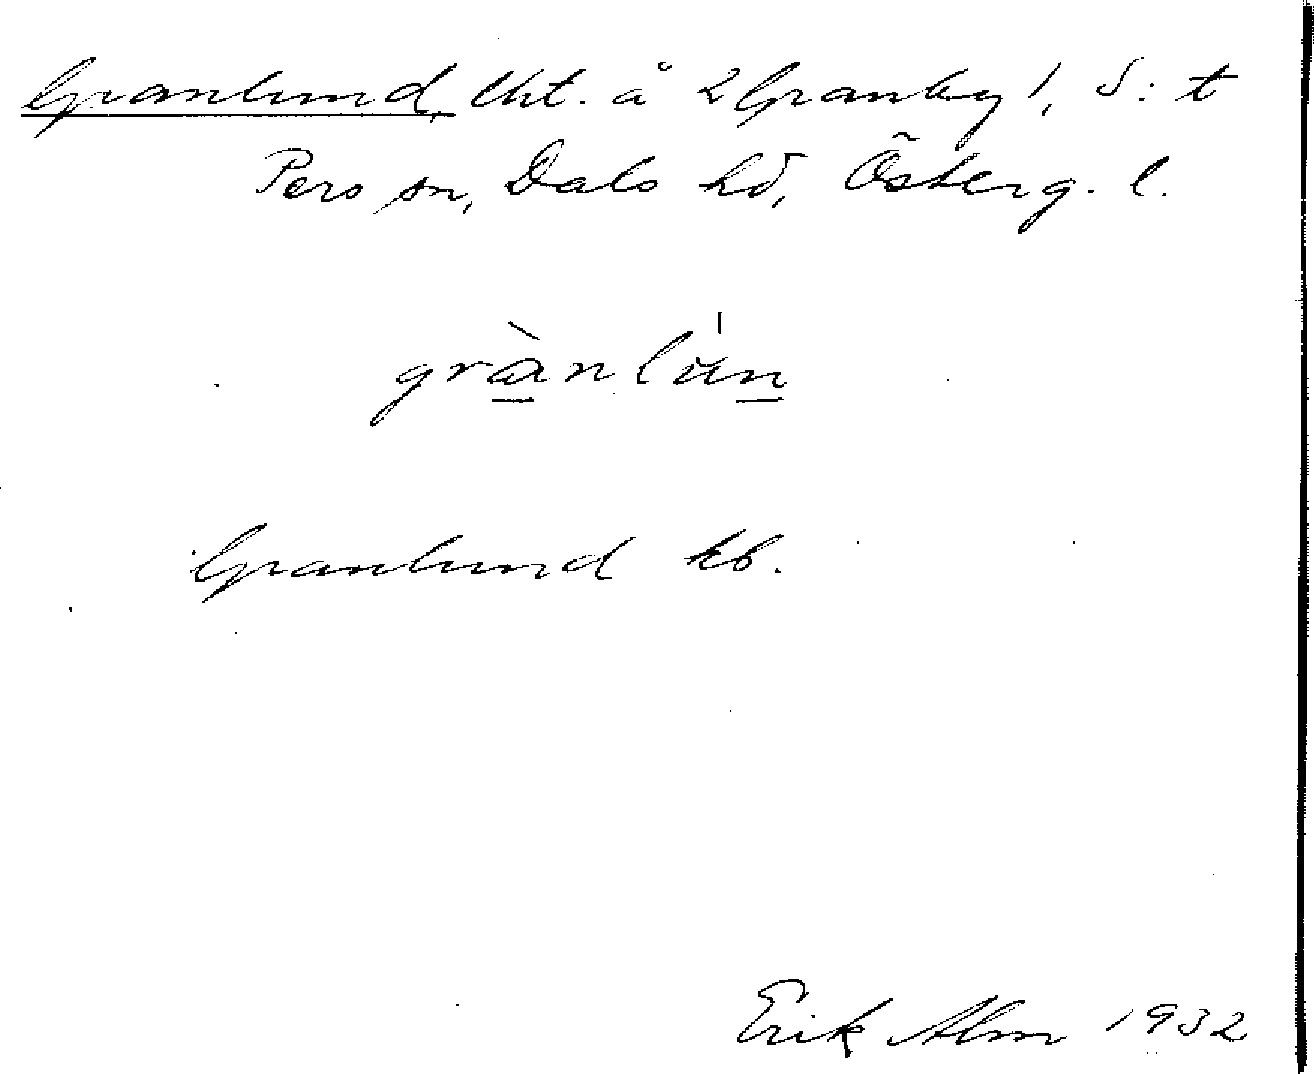 Granlund, lht. å 2 Granby 1, S:t
Pers sn, Dals hd, Österg. l.
grànlún
Granlund kb.
Erik Alm 1932